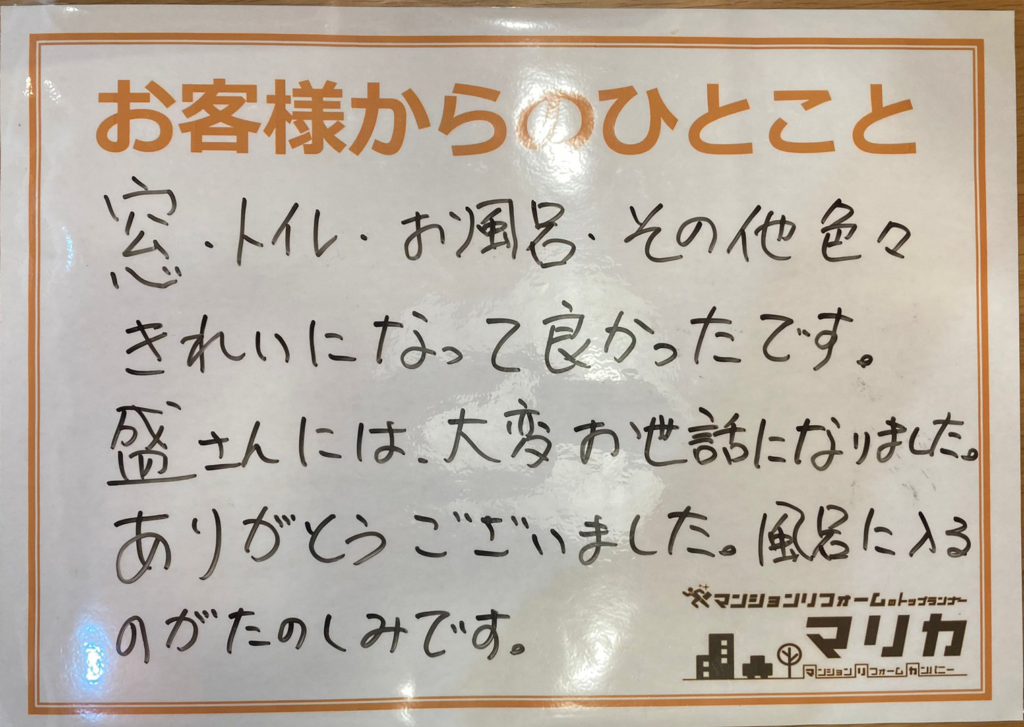 お客様からのひとこと
窓・トイレ・お風呂・その他色々
きれいになって良かったです。
盛さんには、大変お世話になりました。
ありがとうございました。風呂に入る
のがたのしみです。
マンションリフォームのトップランナー
マリカ
マンションリフォームカンパニー